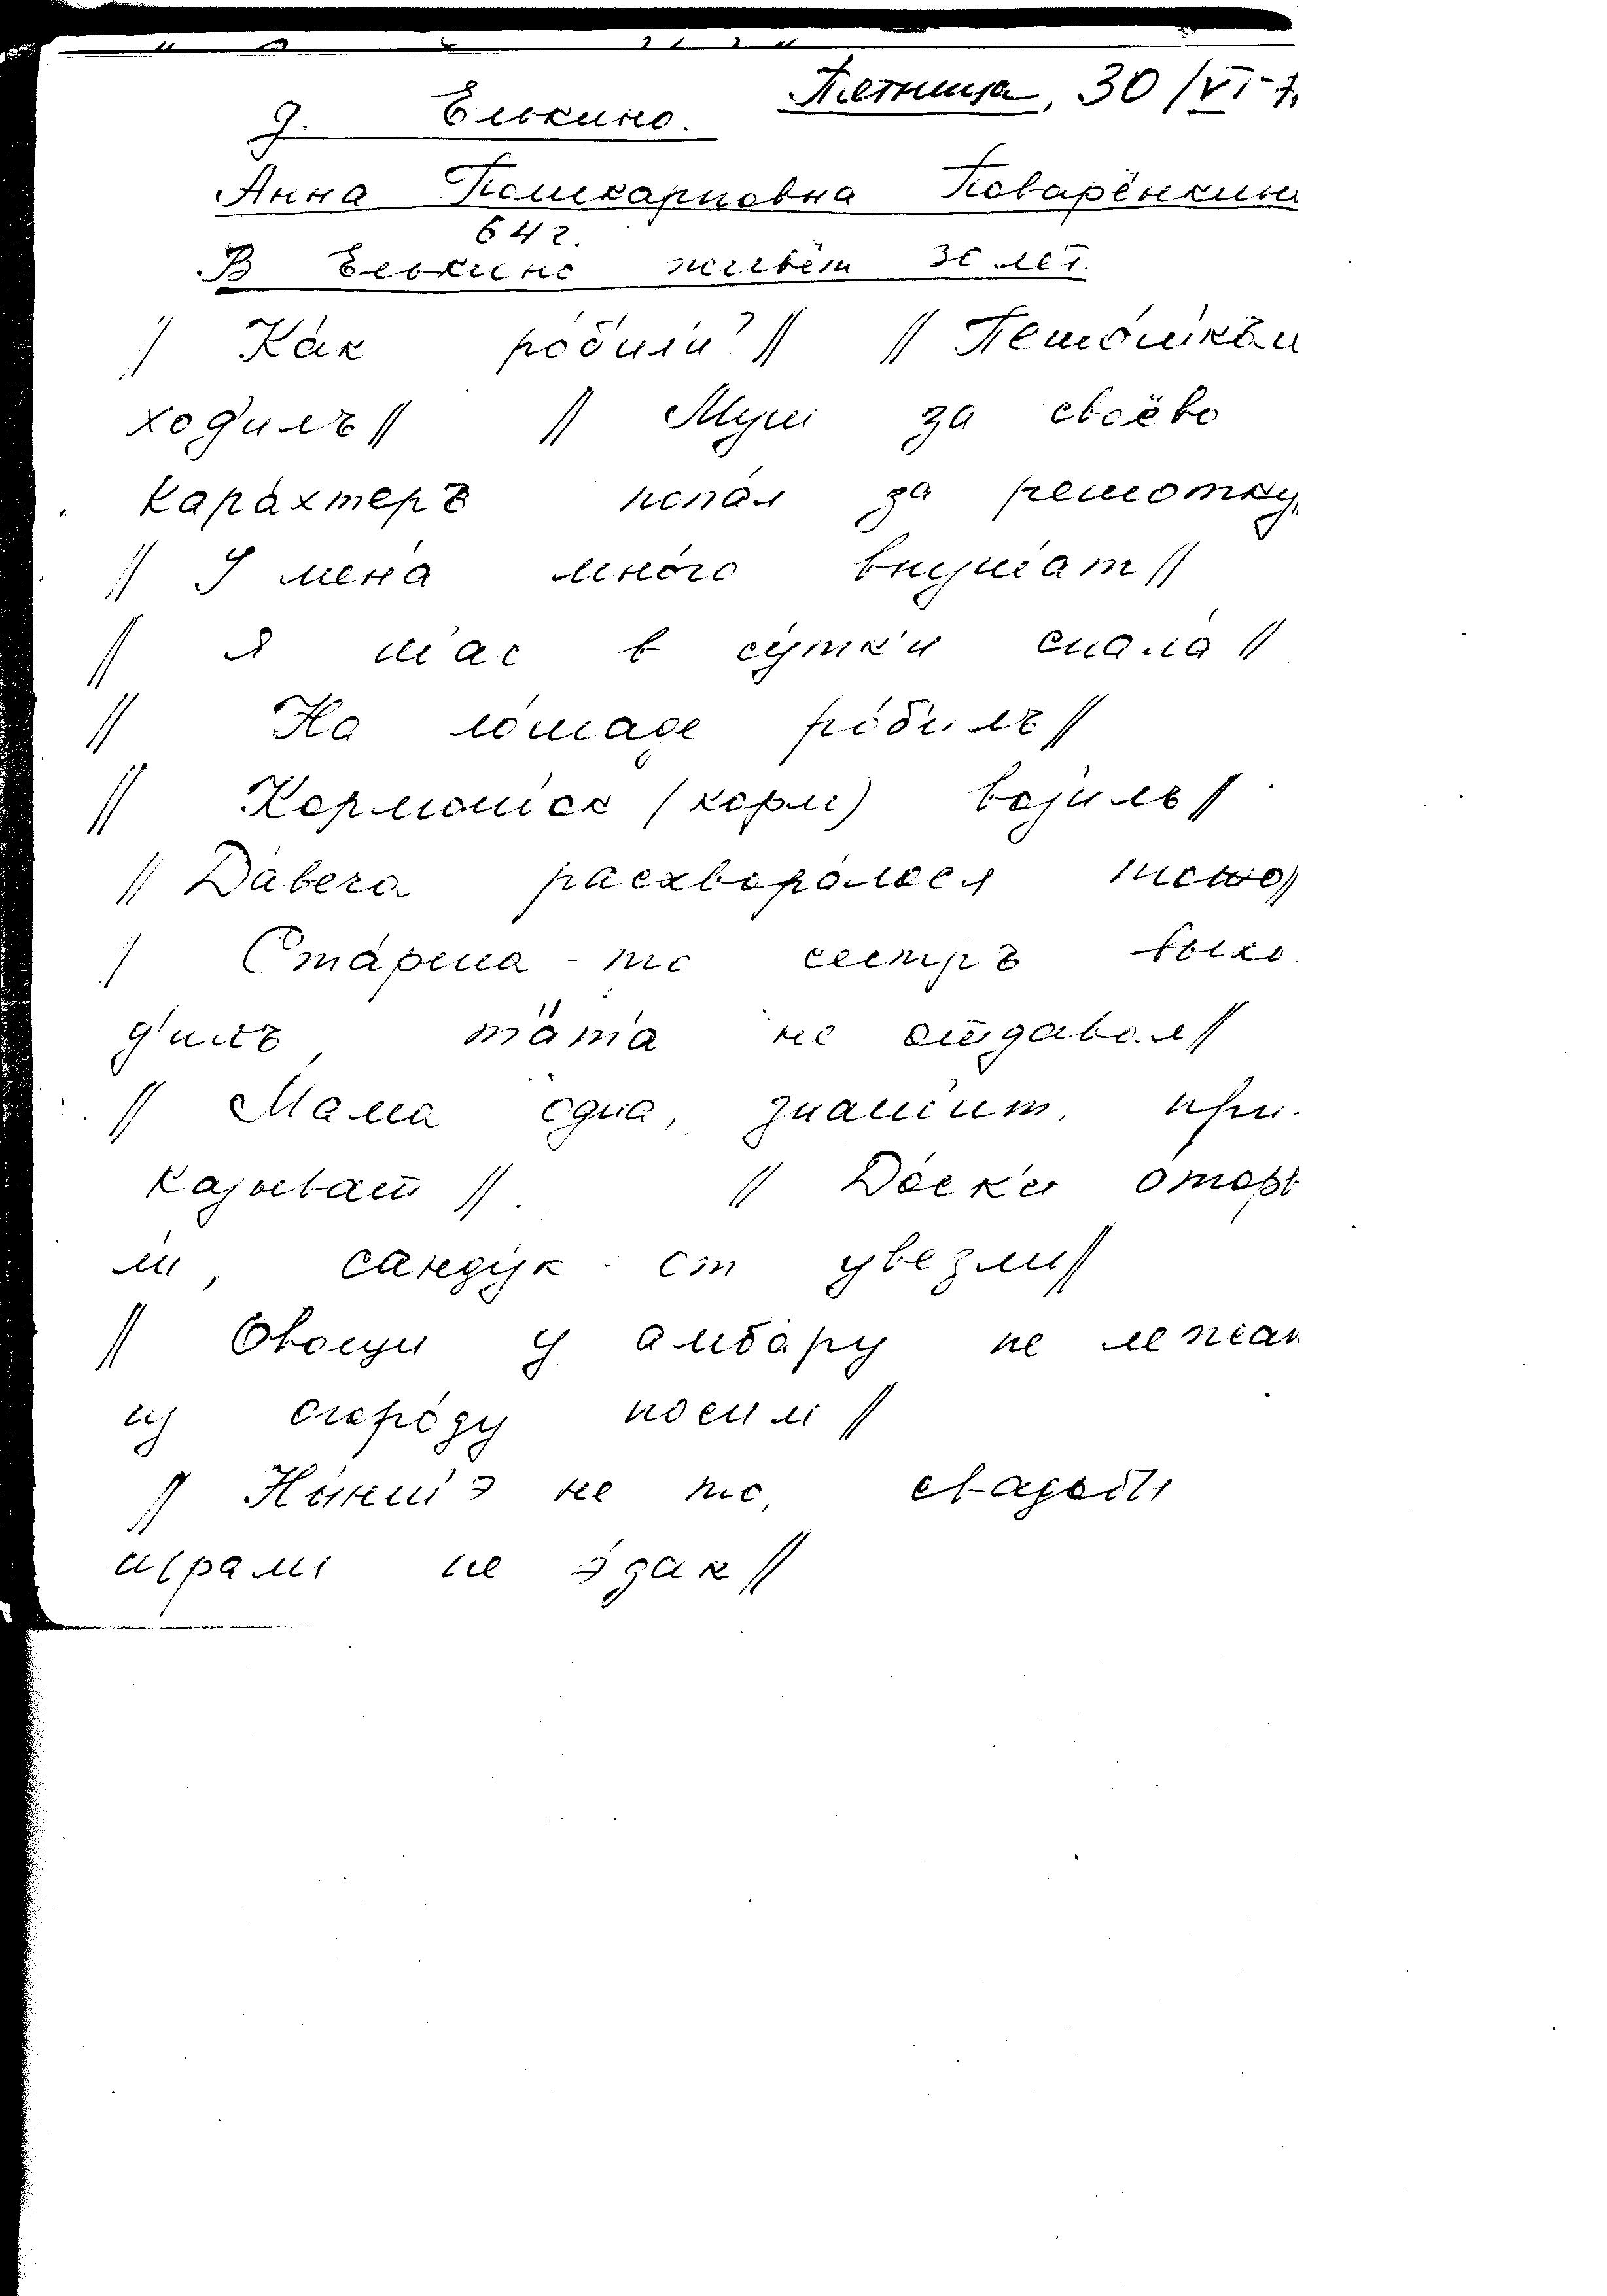 Пятница, 30/VI-7
д. Елькино.
Анна Поликарповна Поварёнкин
64 г.
В Елькино живёт 30 лет.
// Ка́к ро́били? // // Пешо́шкъм
ход'илъ // // Муш за своёво
кара́хтеръ попа́л за решотку
// У мен'а́ мно́го внуш'ат //
// Я ш'ас в су́тк'и спала́ //
// На ло́шаде ро́б'илъ //
// Кормош'ок (корм) воз'илъ //
// Да́веча расхвора́лося
// Ста́рша-то сестръ выхо-
д'илъ, т'а́т'а не отдавал //
// Мама одна, знаш'ит, при-
казыват // // До́ск'и отор
ли, санду́к-от увезли //
// Овощи у амба́ру не лежал
из огоро́ду носили //
// Ны́нш'э не то, свадьбы
играли не э́дак //